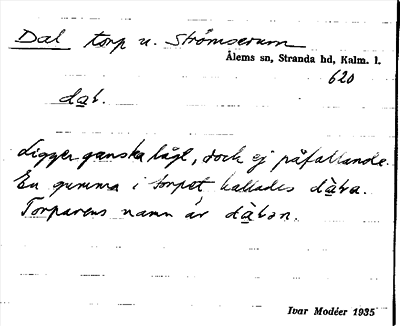 Dal torp u. Strömserum
Ålems sn, Stranda hd, Kalm. l.
620
dɑl.
Ligger ganska lågt, dock ej påfallande.
En gumma i torpet kallades
Torparens namn är
Ivar Modéer 1935